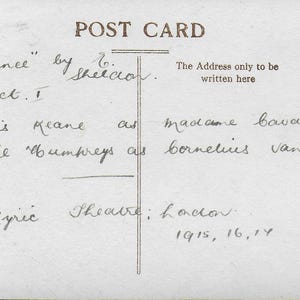 POST CARD
The Address only to be
written here
nce" by E.
Sheldon.
ct. I
is Keane as Madame Cava
e Humphreys as Cornelius Van
yric Theatre, London.
1915, 16, 17